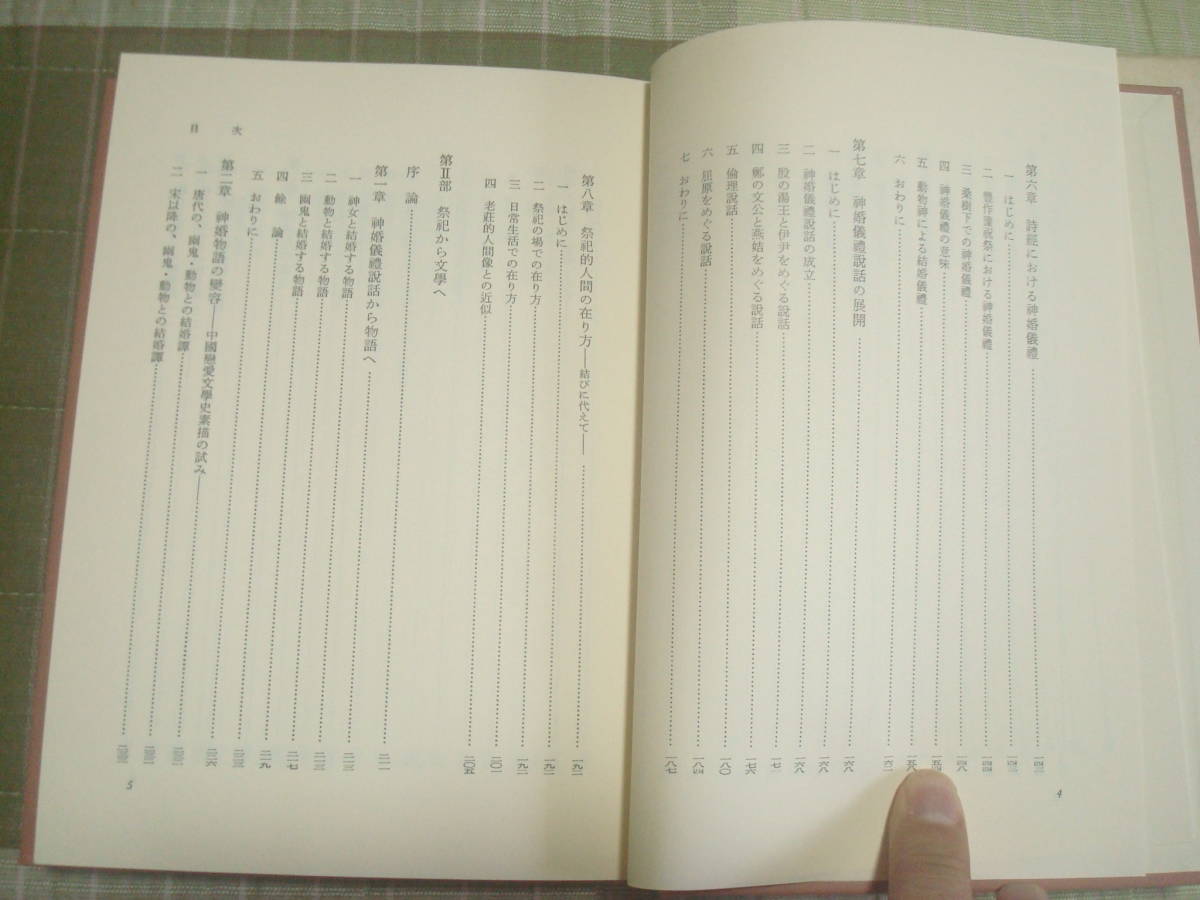 第六章　詩經における神婚儀禮……一四三
一　はじめに……一四三
二　豐作豫祝祭における神婚儀禮……一四四
三　桑樹下での神婚儀禮……一四八
四　神婚儀禮の意味
五　動物神による結婚儀禮……一五八
六　おわりに……一六二
第七章　神婚儀禮說話の展開……一六八
一　はじめに……一六八
二　神婚儀禮說話の成立……一六八
三　殷の湯王と伊尹をめぐる說話……一七二
四　鄭の文公と燕姞をめぐる說話……一七六
五　倫理說話……一八〇
六　屈原をめぐる說話……一八四
七　おわりに……一八七
4
第八章　祭祀的人間の在り方――結びに代えて――……一九一
一　はじめに……一九一
二　祭祀の場での在り方……一九一
三　日常生活での在り方
四　老莊的人間像との近似……二〇五
第Ⅱ部　祭祀から文學へ
序　論……二一一
第一章　神婚儀禮說話から物語へ
一　神女と結婚する物語……二一三
二　動物と結婚する物語
三　幽鬼と結婚する物語……二一七
四　餘　論……二一九
五　おわりに
第二章　神婚物語の變容――中國戀愛文學史素描の試み――
一　唐代の、幽鬼・動物との結婚譚
二　宋以降の、幽鬼・動物との結婚譚
目　次
5